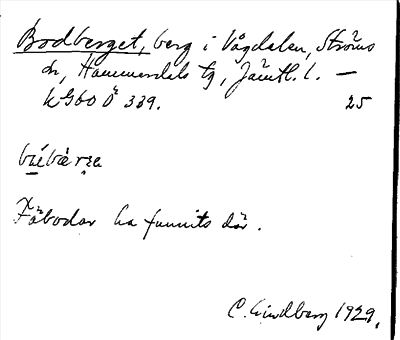 Bodberget, berg i Vågdalen, Ströms
sn, Hammerdals tg, Jämtl. l. —
kGbo Ö 339. 25
Fäbodar ha funnits där.
C. Lindberg 1929.